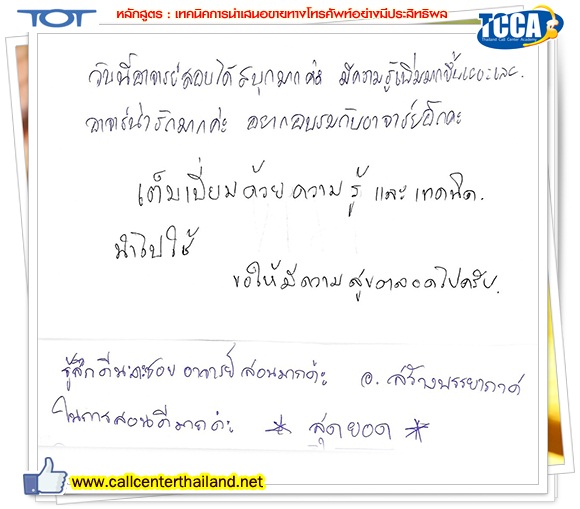 TOT
หลักสูตร : เทคนิคการนำเสนอขายทางโทรศัพท์อย่างมีประสิทธิผล
TCCA
Thailand Call Center Academy
วันนี้อาจารย์สอนได้สนุกมากค่ะ มีความรู้เพิ่มมากขึ้นเยอะเลย.
อาจารย์น่ารักมากค่ะ อยากอบรมกับอาจารย์อีกค่ะ
เต็มเปี่ยมด้วยความรู้ และเทคนิค.
นำไปใช้
ขอให้มีความสุขตลอดไปครับ.
รู้สึกดีนะคะชอบ อาจารย์สอนมากค่ะ อ. สร้างบรรยากาศ
ในการสอนดีมากค่ะ * สุดยอด *
www.callcenterthailand.net